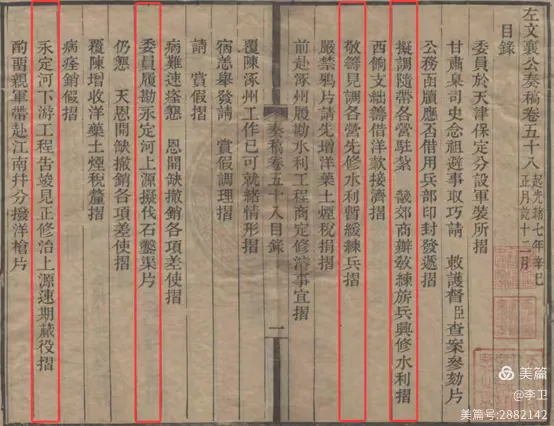 左文襄公奏稿卷五十八 起光緒七年辛巳正月訖十二月
目錄
委員於天津保定分設軍裝所摺
甘肅臬司史念祖避事取巧請 敕護督臣查案參劾片
公務函牘應否借用兵部印封發遞摺
擬調隨帶各營駐紮 畿郊商辦敎練旂兵興修水利摺
西餉支絀籌借洋款接濟摺
敬籌見調各營先修水利暫緩練兵摺
嚴禁鴉片請先增洋藥土煙稅捐摺
前赴涿州履勘水利工程商定修濬事宜摺
奏稿卷五十八目錄 一
覆陳涿州工作已可就緒情形摺
宿恙舉發請 賞假調理摺
請 賞假摺
病難速痊懇 恩開缺撤銷各項差使摺
委員履勘永定河上源擬伐石鑿渠片
仍懇 天恩開缺撤銷各項差使摺
覆陳增收洋藥土煙稅釐摺
病痊銷假摺
永定河下游工程告竣見正修治上源速期蕆役摺
酌留親軍帶赴江南幷分撥洋槍片
美篇
@李卫
美篇号:2882142